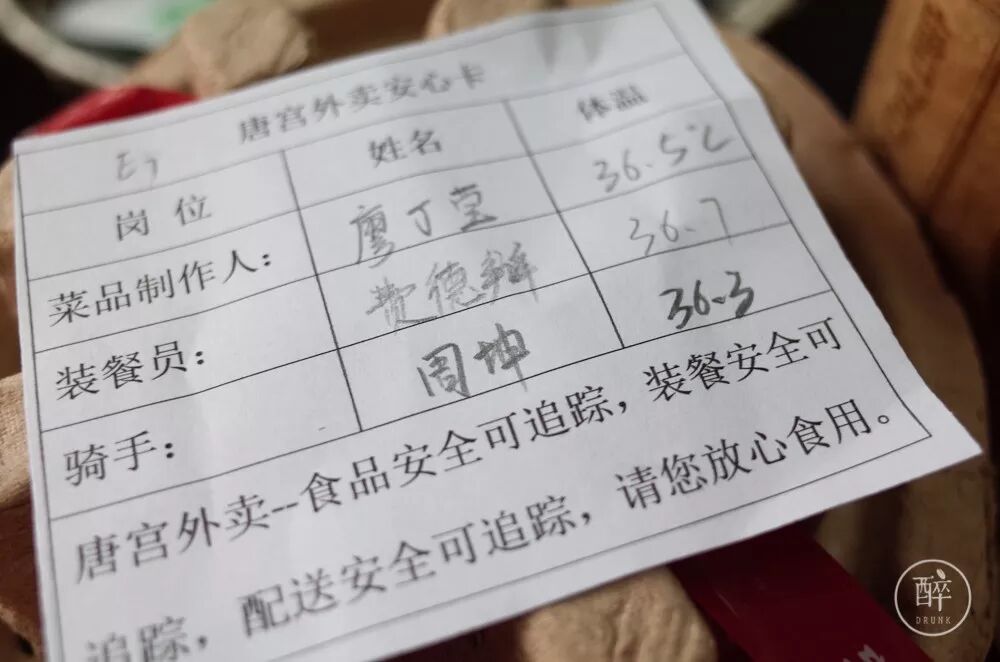 唐宫外卖安心卡
岗位 姓名 体温
菜品制作人： 廖丁莹 36.5℃
装餐员： 费德辉 36.7
骑手： 周坤 36.3
唐宫外卖--食品安全可追踪，装餐安全可
追踪，配送安全可追踪，请您放心食用。
醉
DRUNK